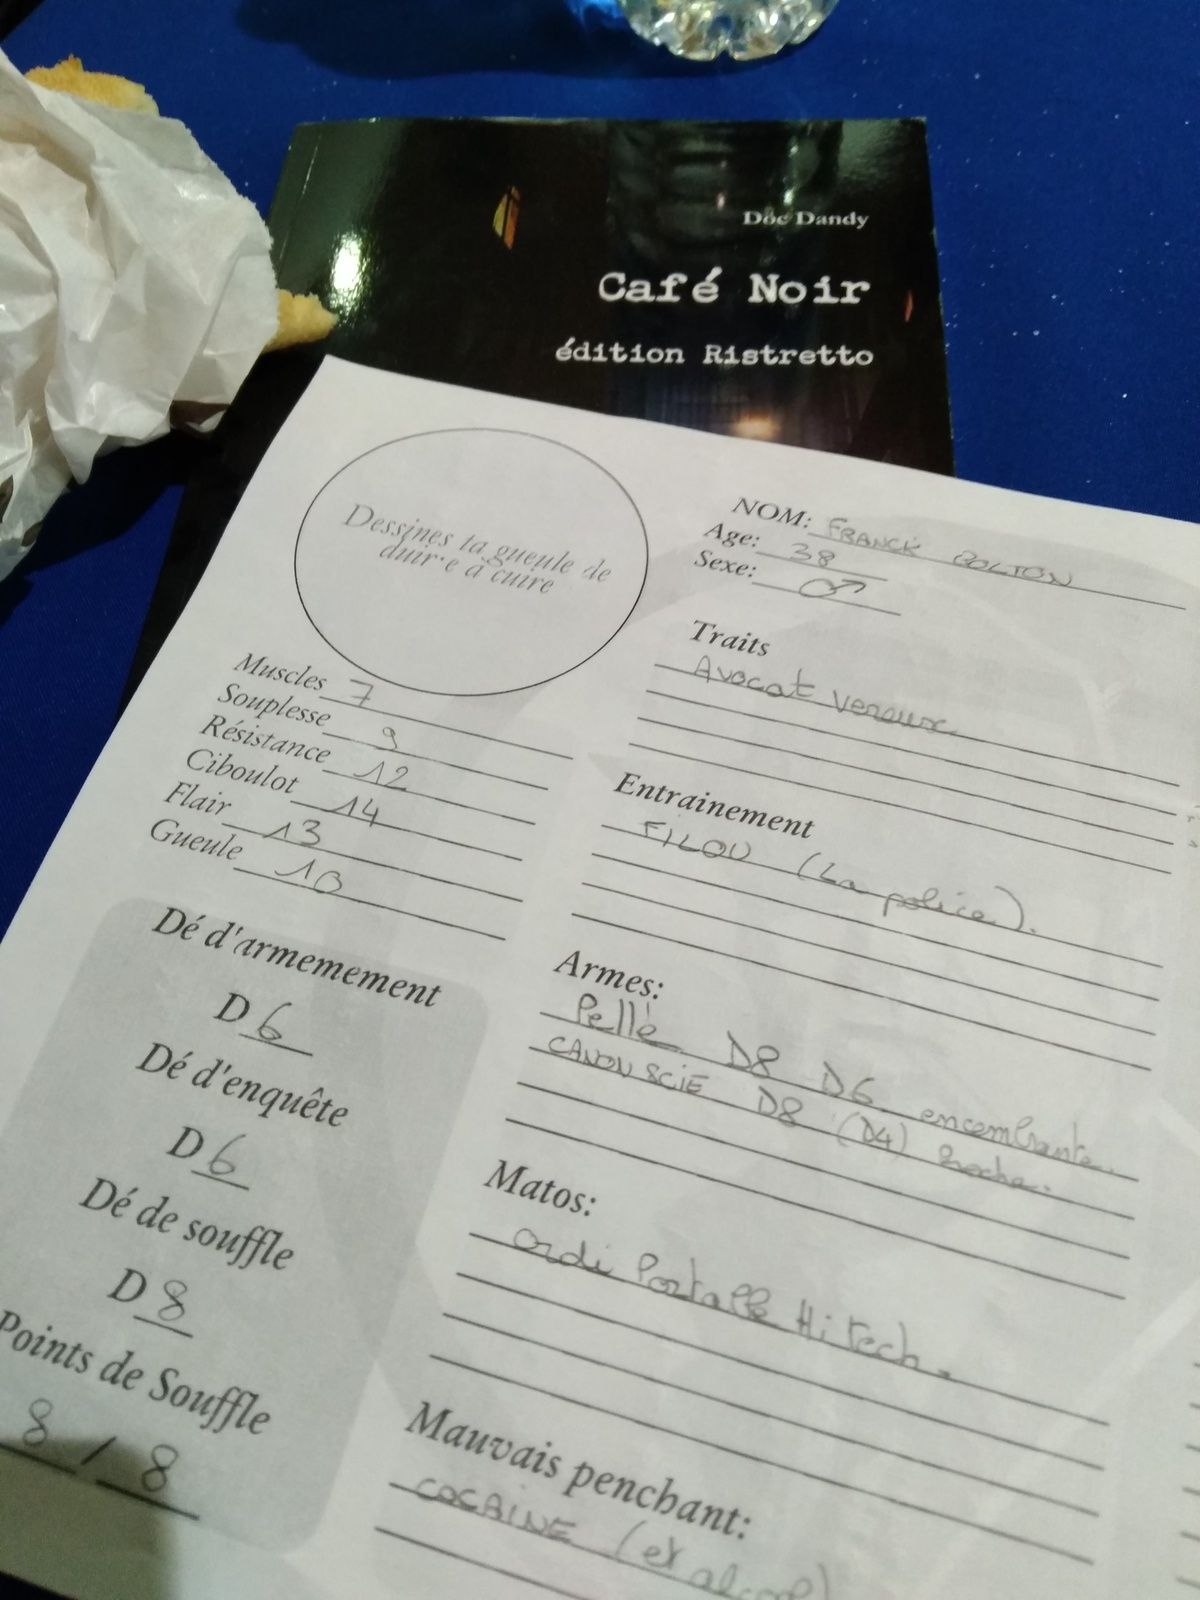 Döc Dandy
Café Noir
édition Ristretto
Dessines ta gueule de
duir·e à cuire
NOM: FRANCK BOLTON
Age: 38
Sexe: ♂
Traits
Avocat vereux
Muscles 7
Souplesse 9
Résistance 12
Ciboulot 14
Flair 13
Gueule 10
Entrainement
FILOU (La police).
Armes:
Pelle D8 D6 encombrante.
CANON SCIE D8 (D4)
Matos:
Ordi Portable Hi tech.
Mauvais penchant:
COCAINE (et alcool)
Dé d'armemement
D 6
Dé d'enquête
D 6
Dé de souffle
D 8
Points de Souffle
8 / 8